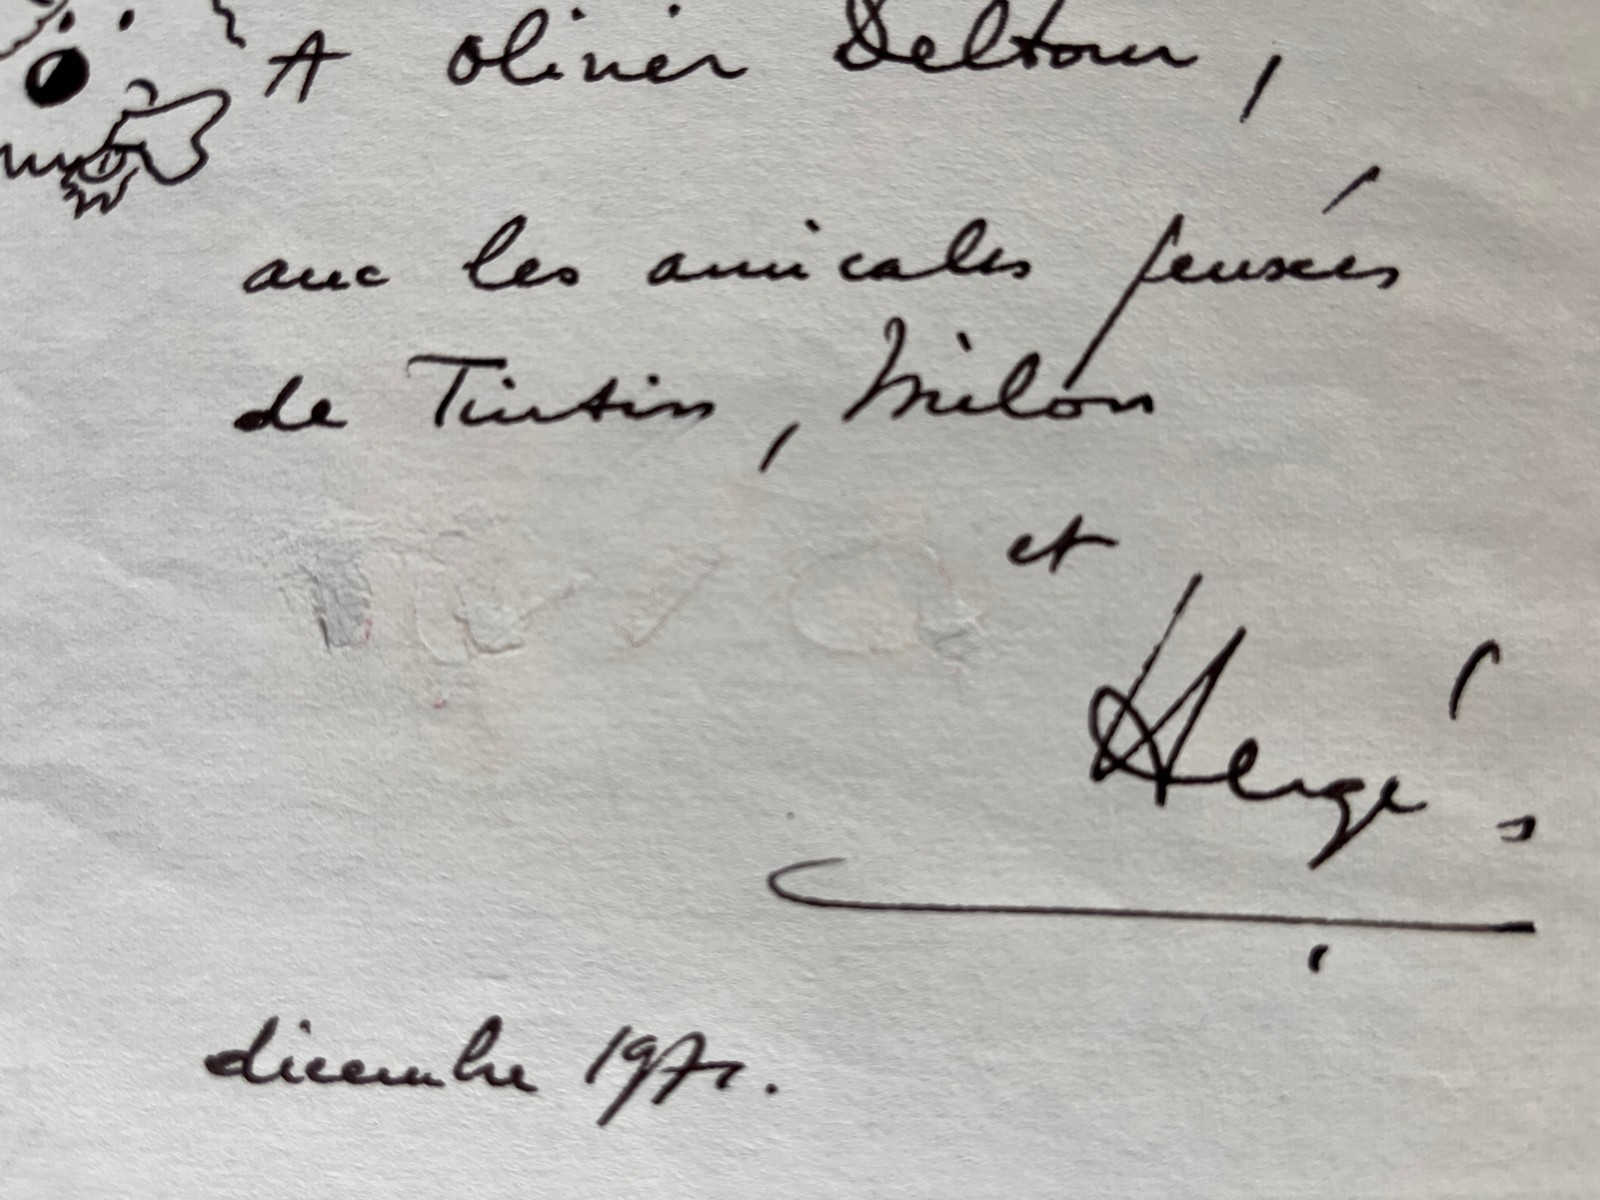 A Olivier Deltour,
avec les amicales pensées
de Tintin, Milou
et
Hergé
décembre 1971.